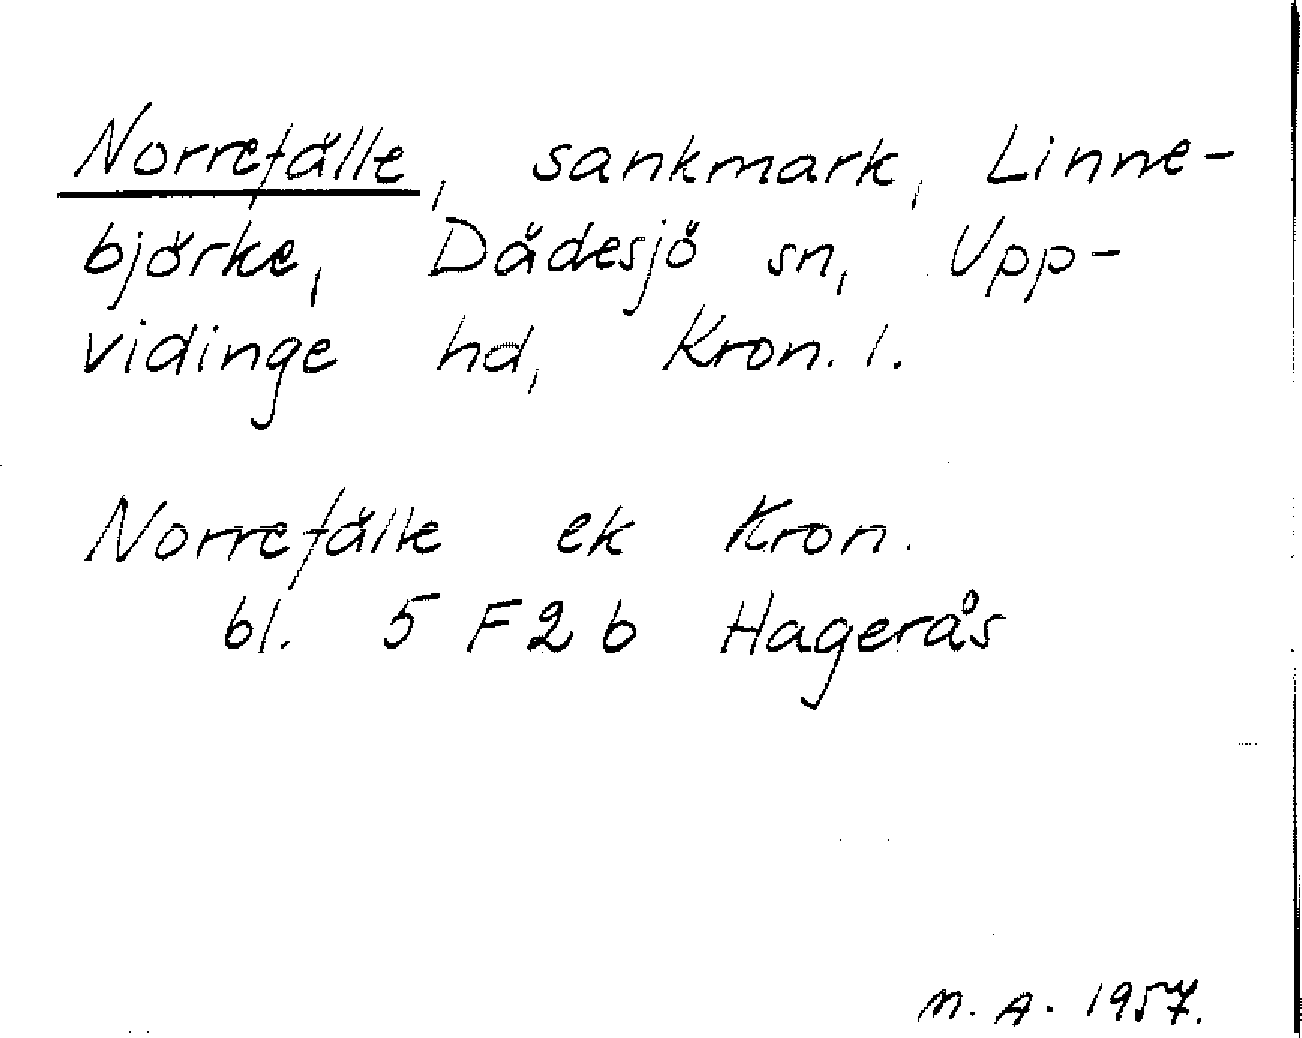 Norrefälle, sankmark, Linne-
björke, Dädesjö sn, Upp-
vidinge hd, Kron. l.
Norrefälle ek Kron.
bl. 5 F 2 b Hagerås
M. A. 1957.